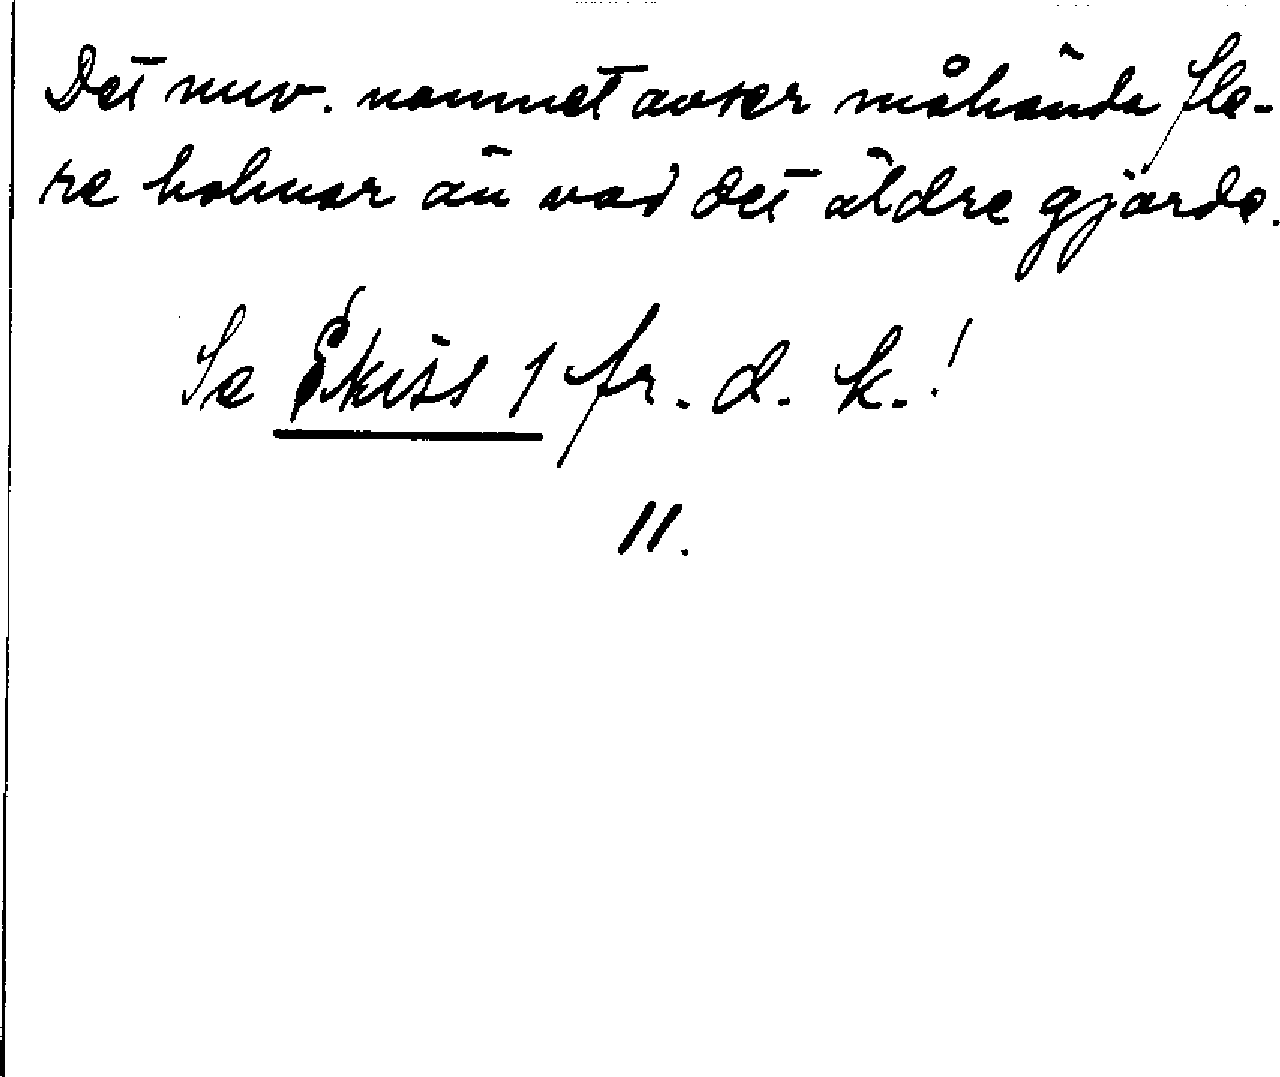 Det nuv. namnet avser måhända fle-
re holmar än vad det äldre gjorde.
Se Skiss 1 fr. d. k.!
11.